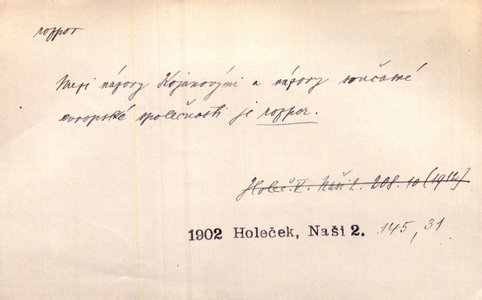 rozpor
Mezi názory Kojanovými a názory současné
evropské společnosti je rozpor.
Holeč. V. Naši 2. 208. 10 (1912)
1902 Holeček, Naši 2. 145, 31